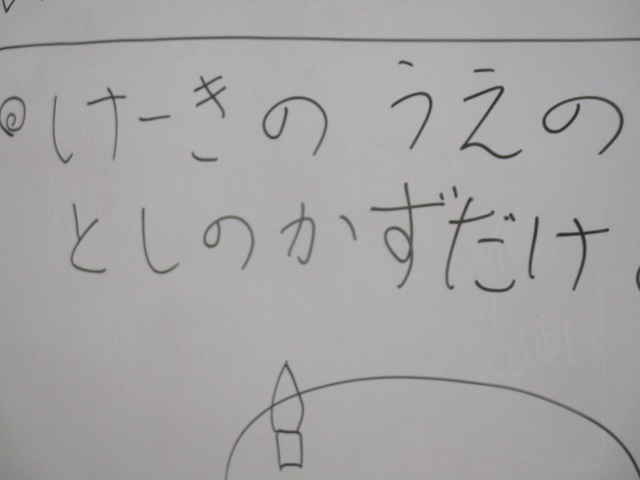 けーきの うえの
としのかずだけ